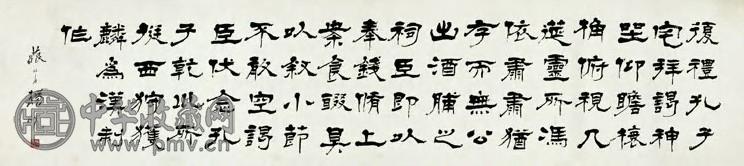 復禮孔子
宅拜謁神
坐仰瞻榱
桷俯視几
筵靈所馮
依肅肅猶
存而無公
出酒脯之
祠臣即以
奉錢脩上
案食醊具
以敘小節
不敢空謁
臣伏念孔
子乾坤所
挺西狩獲
麟為漢制
作
中华收藏网
www.pmv.cn